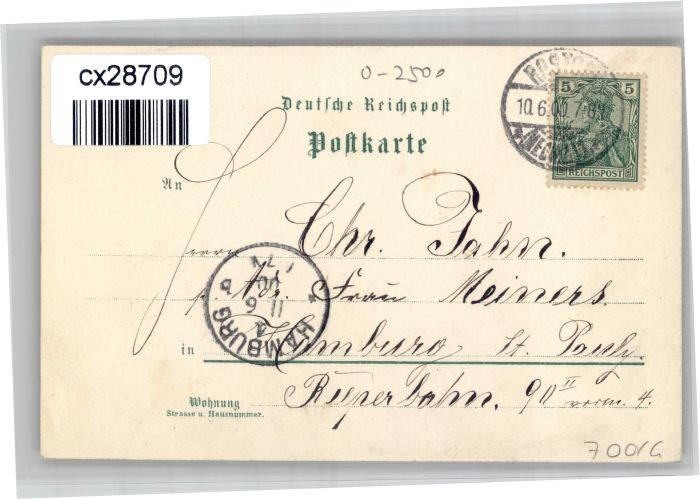 cx28709
0-2500
Deutsche Reichspost
Postkarte
5 5
REICHSPOST
10.6.00. 7-8N
An
Herrn Chr. Jahn.
p. Adr. Frau Meiners.
in Hamburg St. Pauly.
Wohnung Reeperbahn. 90 II vorm. 4.
Strasse u. Hausnummer.
HAMBURG
11 6
00
700/G